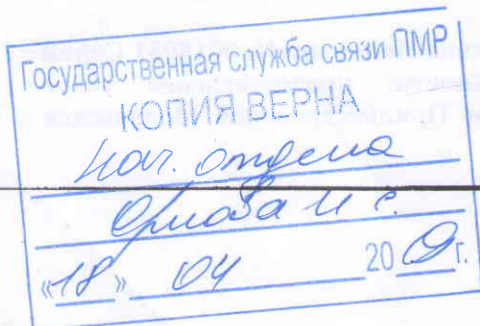 Государственная служба связи ПМР
КОПИЯ ВЕРНА
нач. отдела
И. С.
«18» 04 20 г.